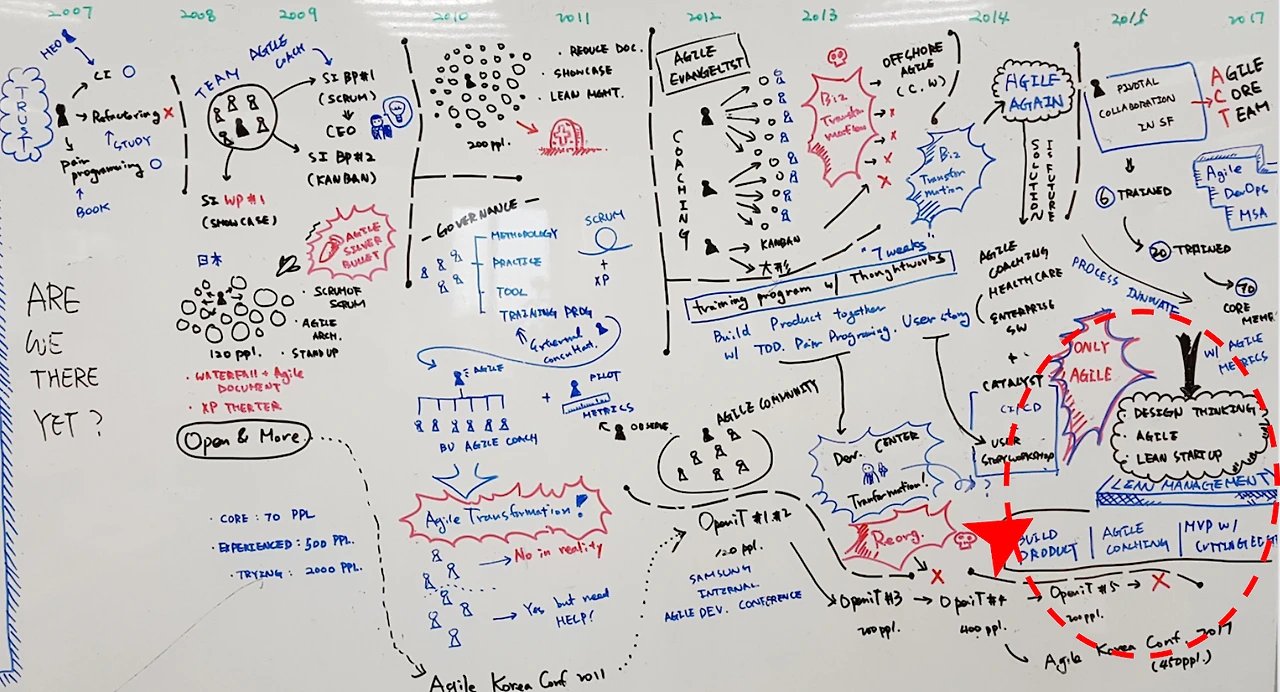 2007
2008
2009
2010
2011
2012
2013
2014
2015
2017
HEO
TRUST
CI
Refactoring X
STUDY
pair
programming
BOOK
ARE
WE
THERE
YET?
TEAM
AGILE
COACH
SI BP#1
(SCRUM)
CEO
SI BP#2
(KANBAN)
SI WP#1
(SHOWCASE)
AGILE
SILVER
BULLET
日本
120 ppl.
· SCRUM OF
SCRUM
· AGILE
ARCH.
· STANDUP
· WATERFALL + Agile
DOCUMENT
· XP THERTER
Open & More
· CORE : 70 PPL
· EXPERIENCED : 500 PPL.
· TRYING : 2000 PPL.
200 ppl.
· REDUCE DOC.
· SHOWCASE
· LEAN MGMT.
GOVERNANCE
METHODOLOGY
PRACTICE
TOOL
TRAINING PROG
SCRUM
+
XP
External
consultant.
AGILE
BU AGILE COACH
+
PILOT
METRICS
OBSERVE
Agile Transformation?
No in reality
Yes but need
HELP!
Agile Korea Conf 2011
AGILE
EVANGELIST
COACHING
KANBAN
大形
Biz
Transformation
OFFSHORE
AGILE
(C.W)
X
X
X
X
Biz
Transformation
"7 weeks"
training program w/ Thoughtworks
Build Product together
w/ TDD. Pair Programing. User story
AGILE COMUNITY
OpeniT #1 #2
120 ppl.
SAMSUNG
INTERNAL
AGILE DEV. CONFERENCE
Dev. CENTER
Tranformation!
?
Reorg.
X
OpeniT #3
200 ppl.
OpeniT #4
400 ppl.
OpeniT #5
200 ppl.
X
Agile Korea Conf. 2017
(450ppl.)
AGILE
AGAIN
SOLUTION
IS FUTURE
AGILE
COACHING
HEALTHCARE
ENTERPRISE
SW
+
CATALYST
CI/CD
USER
STORY WORKSHOP
PIVOTAL
COLLABORATION
IN SF
AGILE
CORE
TEAM
6 TRAINED
20 TRAINED
70
CORE
MEMB
Agile
DevOps
MSA
PROCESS INNOVATE
W/ AGILE
METRICS
ONLY
AGILE
· DESIGN THINKING
· AGILE
· LEAN STARTUP
LEAN MANAGEMENT
BUILD
PRODUCT
AGILE
COACHING
MVP W/
CUTTING EDG